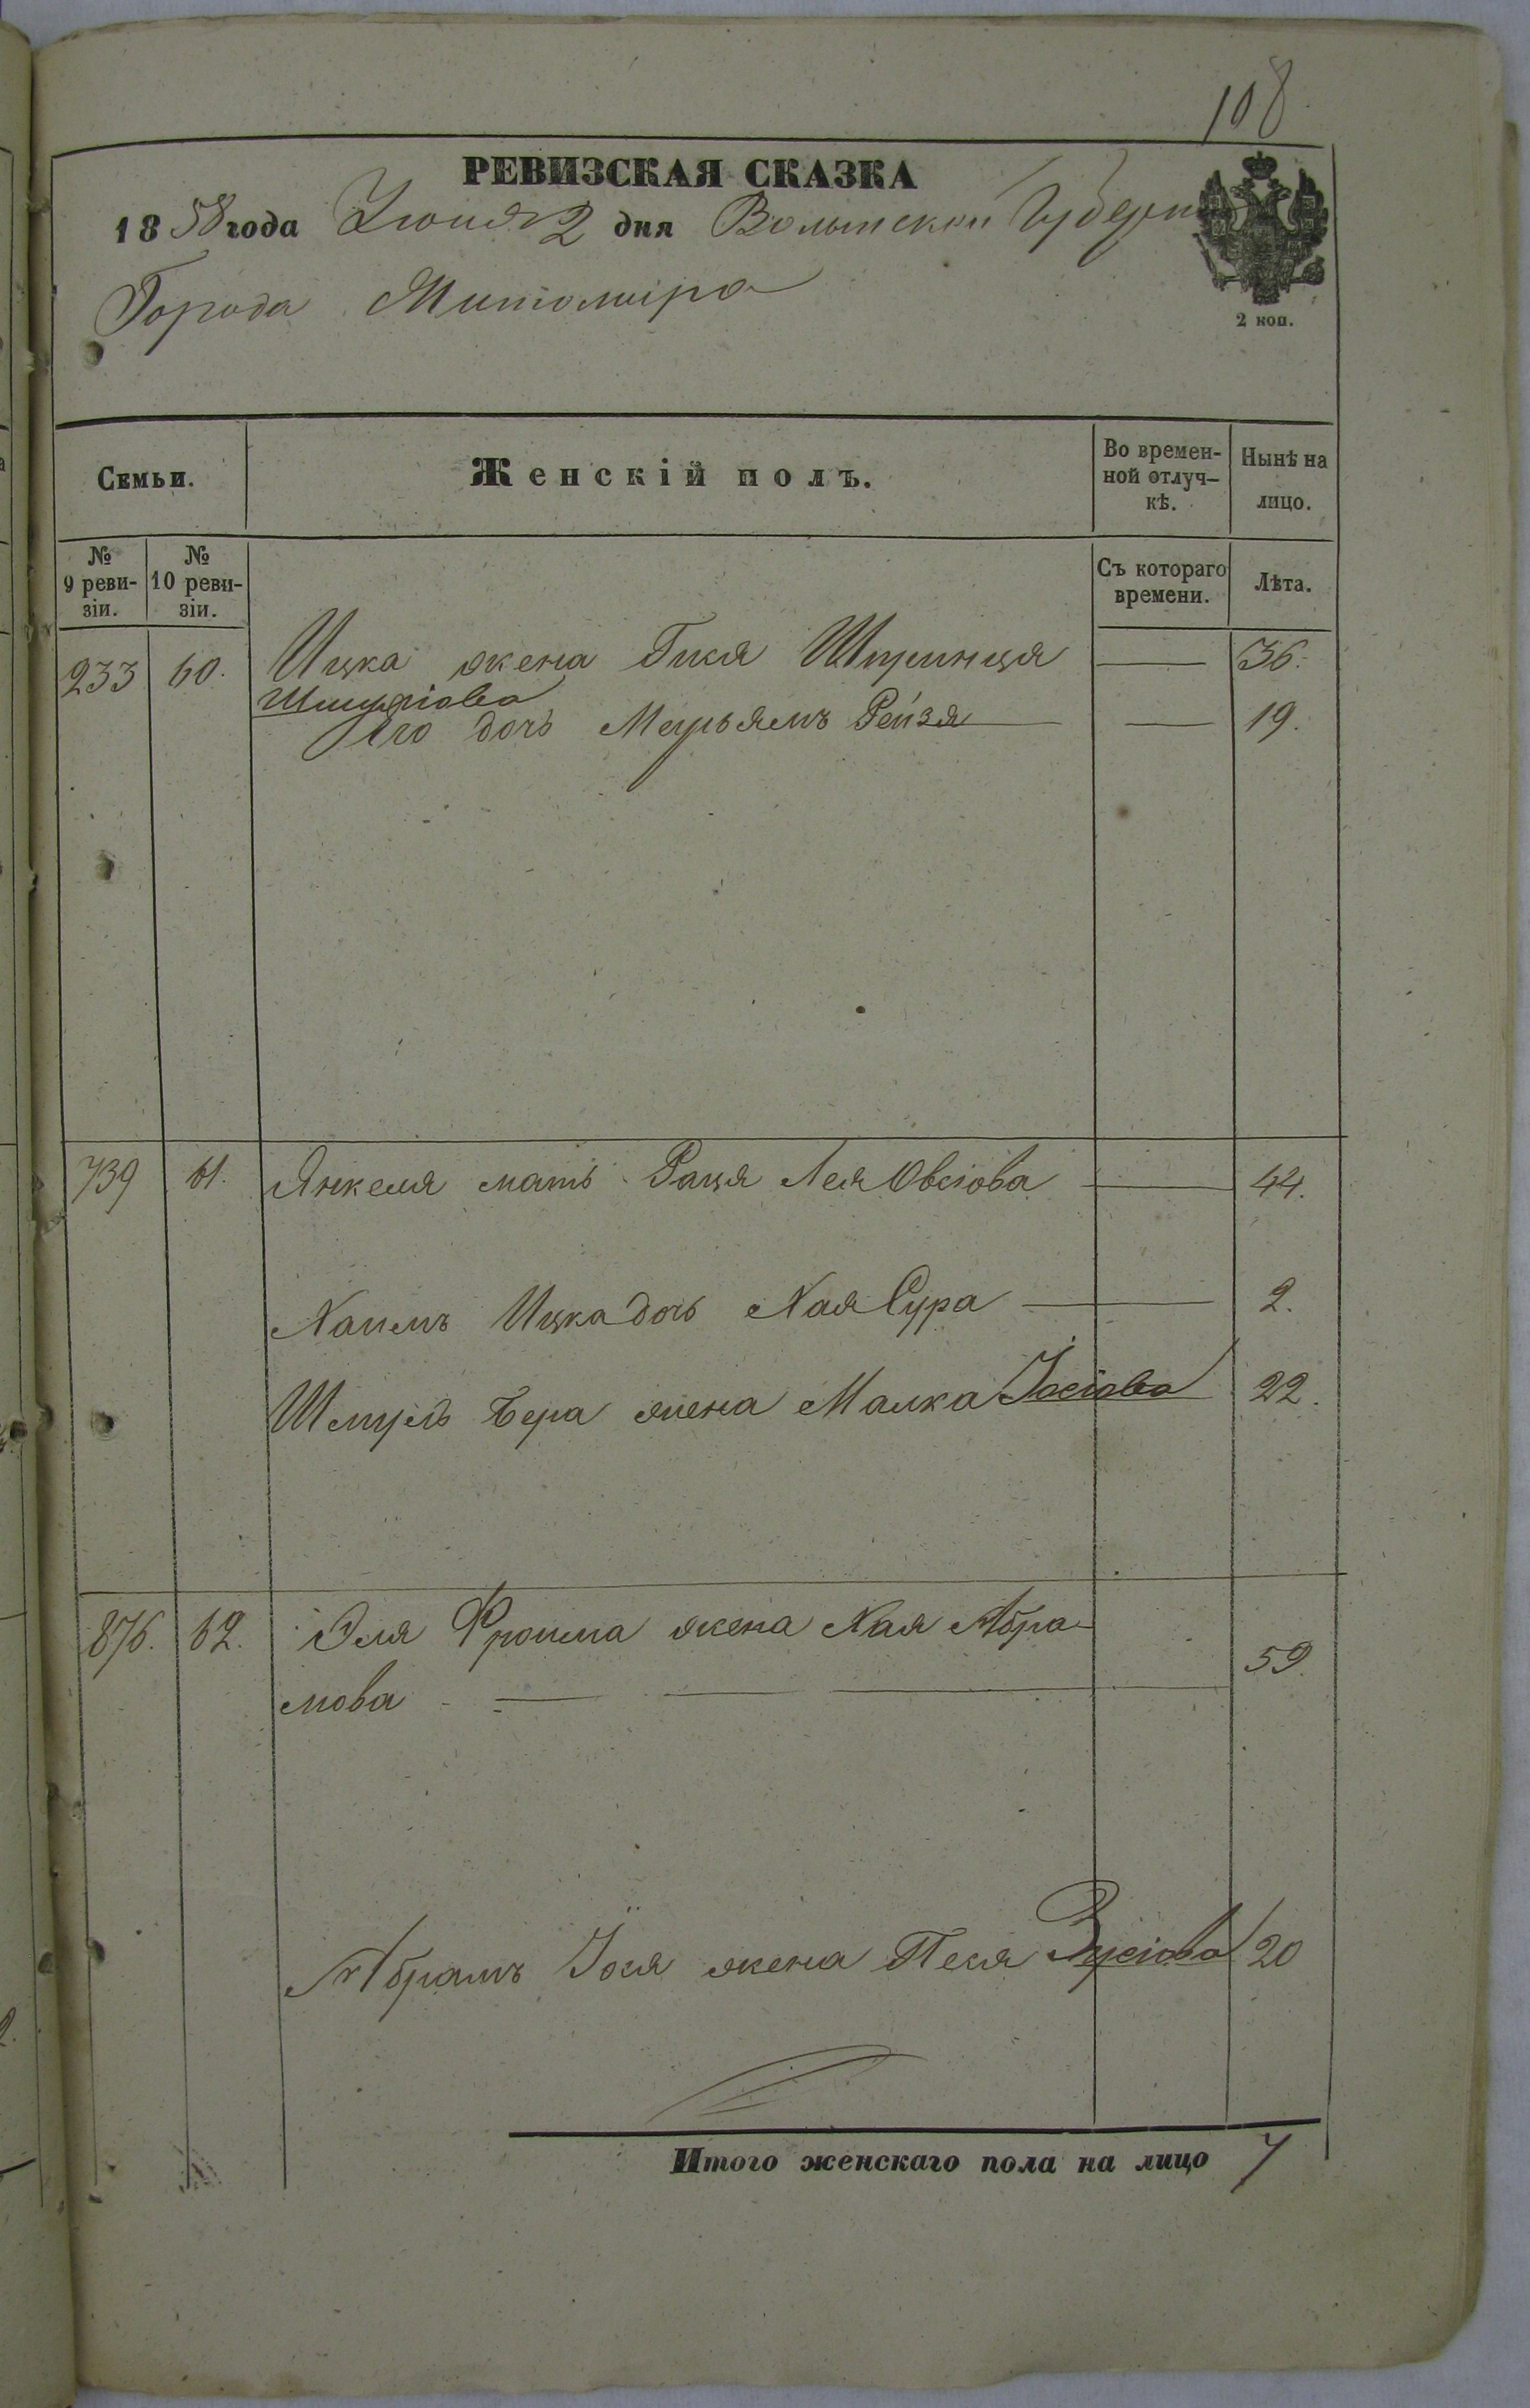 108
РЕВИЗСКАЯ СКАЗКА
1858 года Іюня 2 дня Волынской Губерніи
Города Житоміра
2 коп.
Семьи. Женскій полъ. Во времен- Нынѣ на
ной отлуч-
кѣ. лицо.
№ №
9 реви- 10 реви- Съ котораго Лѣта.
зіи. зіи. времени.
233 60. Ицка жена Гися Шпринця — 36.
Шмуліова
Его дочь Марьямъ Рейзя — 19.
739 61. Янкеля мать Рася Лея Овсіова — 44.
Хаимъ Ицка дочь Хая Сура — 2.
Шмуль Бера жена Малка Іосіова 22.
876. 62. Эля Фроима жена Хая Абра-
мова — 59.
Абрамъ Іося жена Песя Зусіова 20
Итого женскаго пола на лицо 7